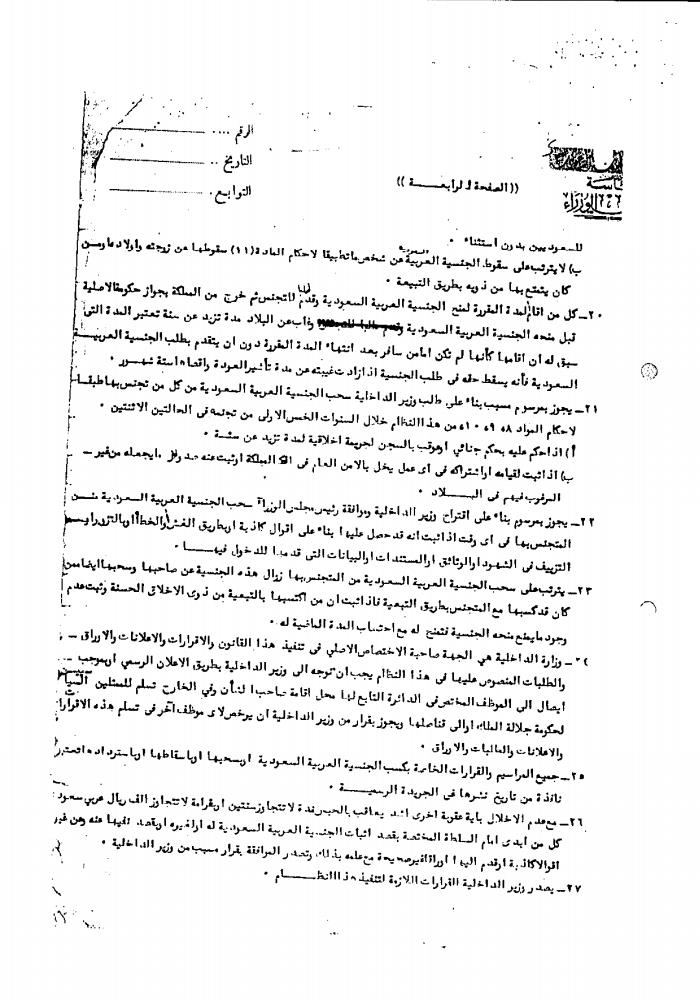 الرقم ....
التاريخ ..
التوابع .
ديوان
رئاسة
مجلس الوزراء
((الصفحة الرابعـــــة))
للسعوديين بدون استثناء .
ب) لا يترتب على سقوط الجنسية العربية السعودية عن شخص ما تطبيقا لاحكام المادة (١١) سقوطها عن زوجته واولاده او من
كان يتمتع بها من ذويه بطريق التبعية .
٢٠ـ كل من اقام المدة المقررة لمنح الجنسية العربية السعودية وقدم طلبا للتجنس ثم خرج من المملكة بجواز حكومته الاصلية
قبل منحه الجنسية العربية السعودية وغاب عن البلاد مدة تزيد عن سنة تعتبر المدة التي
سبق له ان اقامها كأنها لم تكن اما من سافر بعد انتهاء المدة المقررة دون ان يتقدم بطلب الجنسية العربيـة
السعودية فأنه يسقط حقه في طلب الجنسية اذا زادت غيبته عن مدة تأشير العودة واقصاها ستة شهـور .
٢١ـ يجوز بمرسوم مسبب بناء على طلب وزير الداخلية سحب الجنسية العربية السعودية من كل من تجنس بها طبقا
لاحكام المواد ٨، ٩، ١٠ من هذا النظام خلال السنوات الخمس الاولى من تجنسه في الحالتين الاثنتين .
أ) اذا حكم عليه بحكم جنائي او عوقب بالسجن لجريمة اخلاقية لمدة تزيد عن سنـة .
ب) اذا ثبت لقيامه او اشتراكه في اى عمل يخل بالامن العام في المملكة او ثبت عنه صدور ما يجعله من غير ـ
المرغوب فيهم في البــــلاد .
٢٢ـ يجوز بمرسوم بناء على اقتراح وزير الداخلية وموافقة رئيس مجلس الوزراء سحب الجنسية العربية السعودية مـن
المتجنس بها في اى وقت اذا ثبت انه قد حصل عليها بناء على اقوال كاذبة او بطريق الغش او الخطأ او بالتزوير او
التزييف في الشهود او الوثائق او المستندات او البيانات التي قدمها للدخول فيهــا .
٢٣ـ يترتب على سحب الجنسية العربية السعودية من المتجنس بها زوال هذه الجنسية عن صاحبها وسحبها ايضا ممن
كان قد كسبها مع المتجنس بطريق التبعية فاذا ثبت ان من اكتسبها بالتبعية من ذوى الاخلاق الحسنة وثبت عدم
وجود ما يمنع منحه الجنسية فتمنح له مع احتساب المدة الماضية له .
٢٤ـ وزارة الداخلية هي الجهة صاحبة الاختصاص الاصلي في تنفيذ هذا القانون والاقرارات والاعلانات والاوراق ـ
والطلبات المنصوص عليها في هذا النظام يجب ان توجه الى وزير الداخلية بطريق الاعلان الرسمي او بموجب ـ
ايصال الى الموظف المختص في الدائرة التابع لها محل اقامة صاحب الشأن وفي الخارج تسلم للممثلين السياسيين
لحكومة جلالة الملك او الى قناصلها ويجوز بقرار من وزير الداخلية ان يرخص لاى موظف آخر في تسلم هذه الاقرارات
والاعلانات والطلبات والاوراق .
٢٥ـ جميع المراسيم والقرارات الخاصة بكسب الجنسية العربية السعودية او سحبها او باسقاطها او باستردادها تعتبر
نافذة من تاريخ نشرها في الجريدة الرسميـــة .
٢٦ـ مع عدم الاخلال باية عقوبة اخرى اشد يعاقب بالحبس لمدة لا تتجاوز سنتين او بغرامة لا تتجاوز الف ريال عربي سعودي
كل من ابدى امام السلطة المختصة بقصد اثبات الجنسية العربية السعودية له او لغيره او بقصد نفيها عنه وعن غيره
اقوالا كاذبة او قدم اليها اوراقا غير صحيحة مع علمه بذلك وتصدر الموافقة بقرار مسبب من وزير الداخلية .
٢٧ـ يصدر وزير الداخلية القرارات اللازمة لتنفيذ هذا النظـــام .